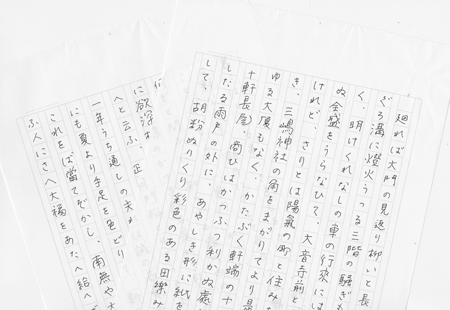 廻れば大門の見返り柳いと長
ぐろ溝に燈火うつる三階の騒ぎも
く、明けくれなしの車の行來には
ぬ全盛をうらなひて、大音寺前と
けれど、さりとは陽氣の町と住み
き、三嶋神社の角をまがりてより是
ゆる大厦もなく、かたぶく軒端の十
十軒長屋、商ひはかつふつ利かぬ處
したる雨戸の外に、あやしき形に紙を
して、胡粉ぬりくり彩色のある田樂み
に欲深
へと云ふ、正
一年うち通しの夫れ
にも夏より手足を色どり
これをば當てぞかし、南無や大
ふ人にさへ大福をあたへ給へ